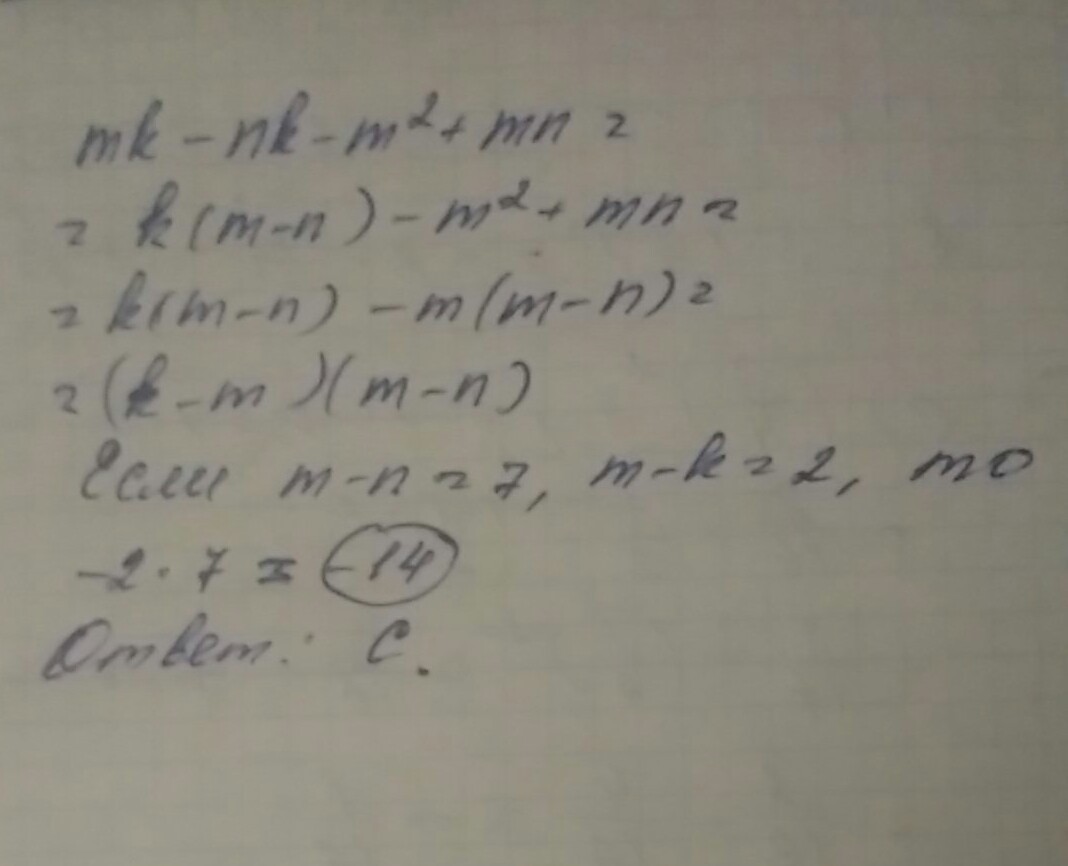 mk - nk - m² + mn =
= k(m-n) - m² + mn =
= k(m-n) - m(m-n) =
= (k-m)(m-n)
Если m-n = 7, m-k = 2, то
-2 · 7 = -14
Ответ: С.